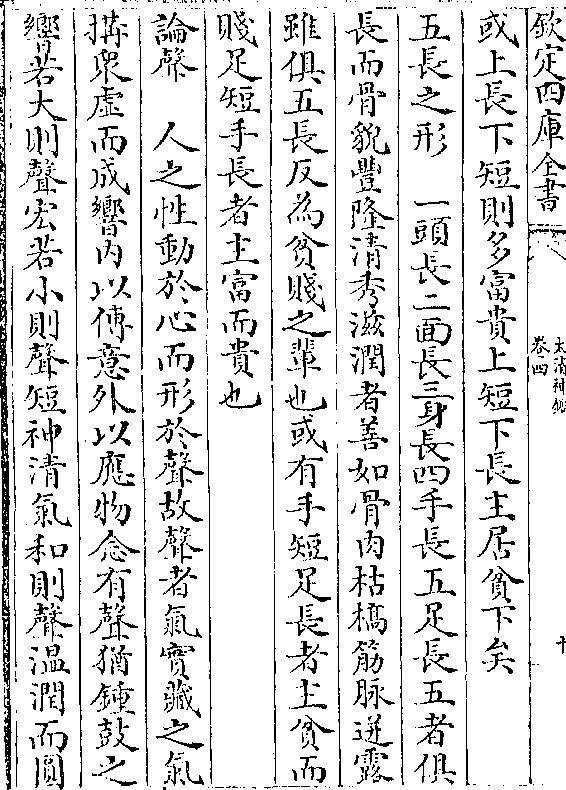 欽定四庫全書
太清神鑑
卷四
十
或上長下短則多富貴上短下長主居貧下矣
五長之形　一頭長二面長三身長四手長五足長五者俱
長而骨貌豐隆清秀滋潤者善如骨肉枯槁筋脉迸露
雖俱五長反為貧賤之軰也或有手短足長者主貧而
賤足短手長者主富而貴也
論聲　人之性動於心而形於聲故聲者氣實藏之氣
搆衆虛而成響内以傳意外以應物念有聲猶鍾鼓之
響若大則聲宏若小則聲短神清氣和則聲温潤而圓